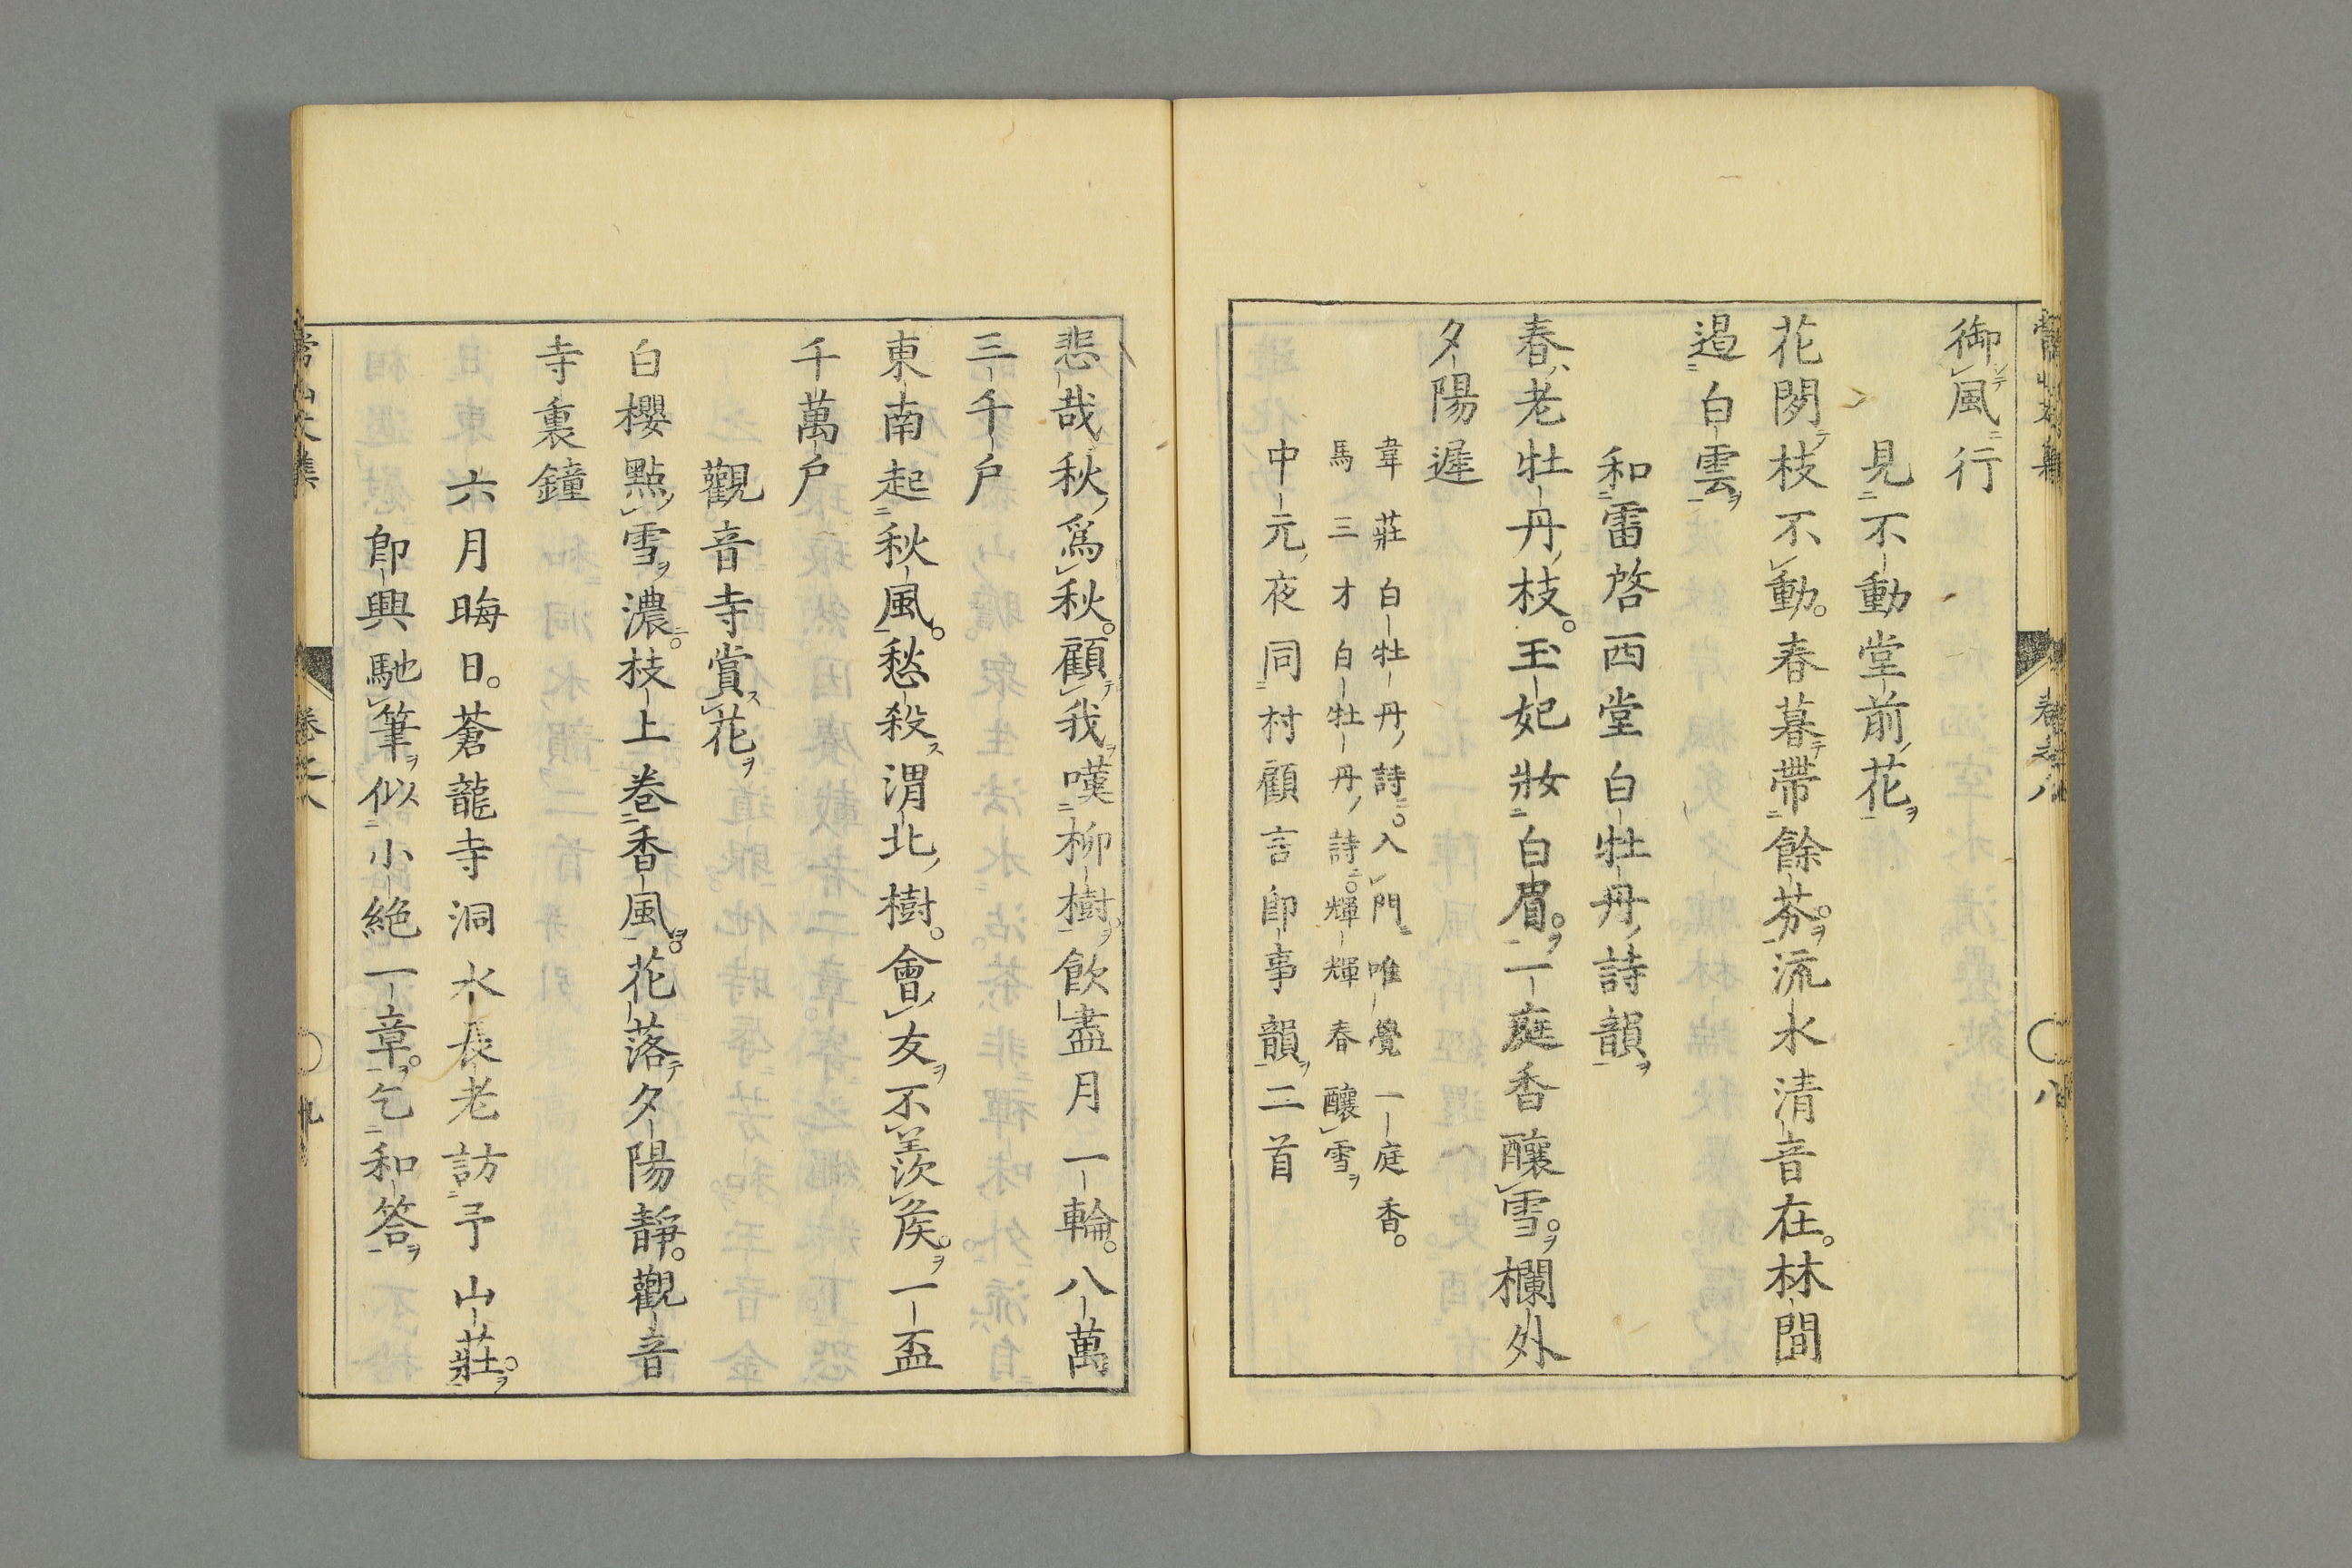 御風行
見不動堂前花
花開枝不動春暮帶餘芬流水清音在林間
過白雲
和雷啓西堂白牡丹詩韻
春老牡丹枝玉妃妝白眉一庭香釀雪欄外
夕陽遲
韋莊白牡丹詩入門唯覺一庭香
馬三才白牡丹詩輝輝春釀雪
中元夜同村顧言卽事韻二首
悲哉秋爲秋顧我嘆柳樹飲盡月一輪八萬
三千戶
東南起秋風愁殺渭北樹會友不羨侯一盃
千萬戶
觀音寺賞花
白櫻點雪濃枝上卷香風花落夕陽靜觀音
寺裏鐘
六月晦日蒼龍寺洞水長老訪予山莊
卽興馳筆似小絶一章乞和答
常山文集 卷之八 八
常山文集 卷之八 九